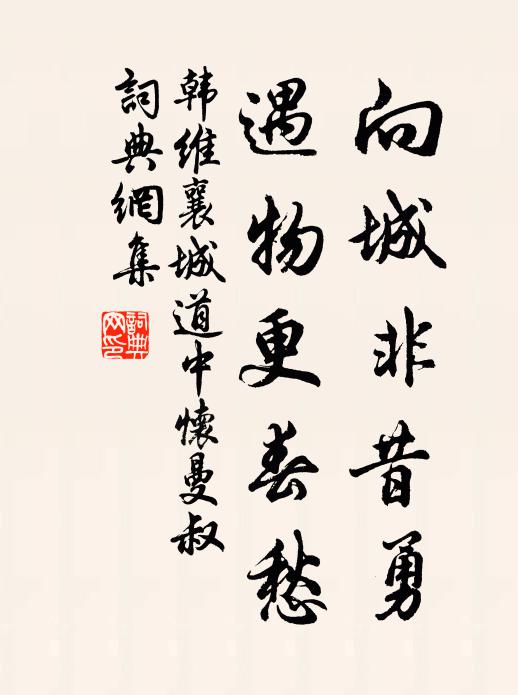 向城非昔勇
遇物更春愁
韩维襄城道中懷曼叔
詞典網集
詞典网印